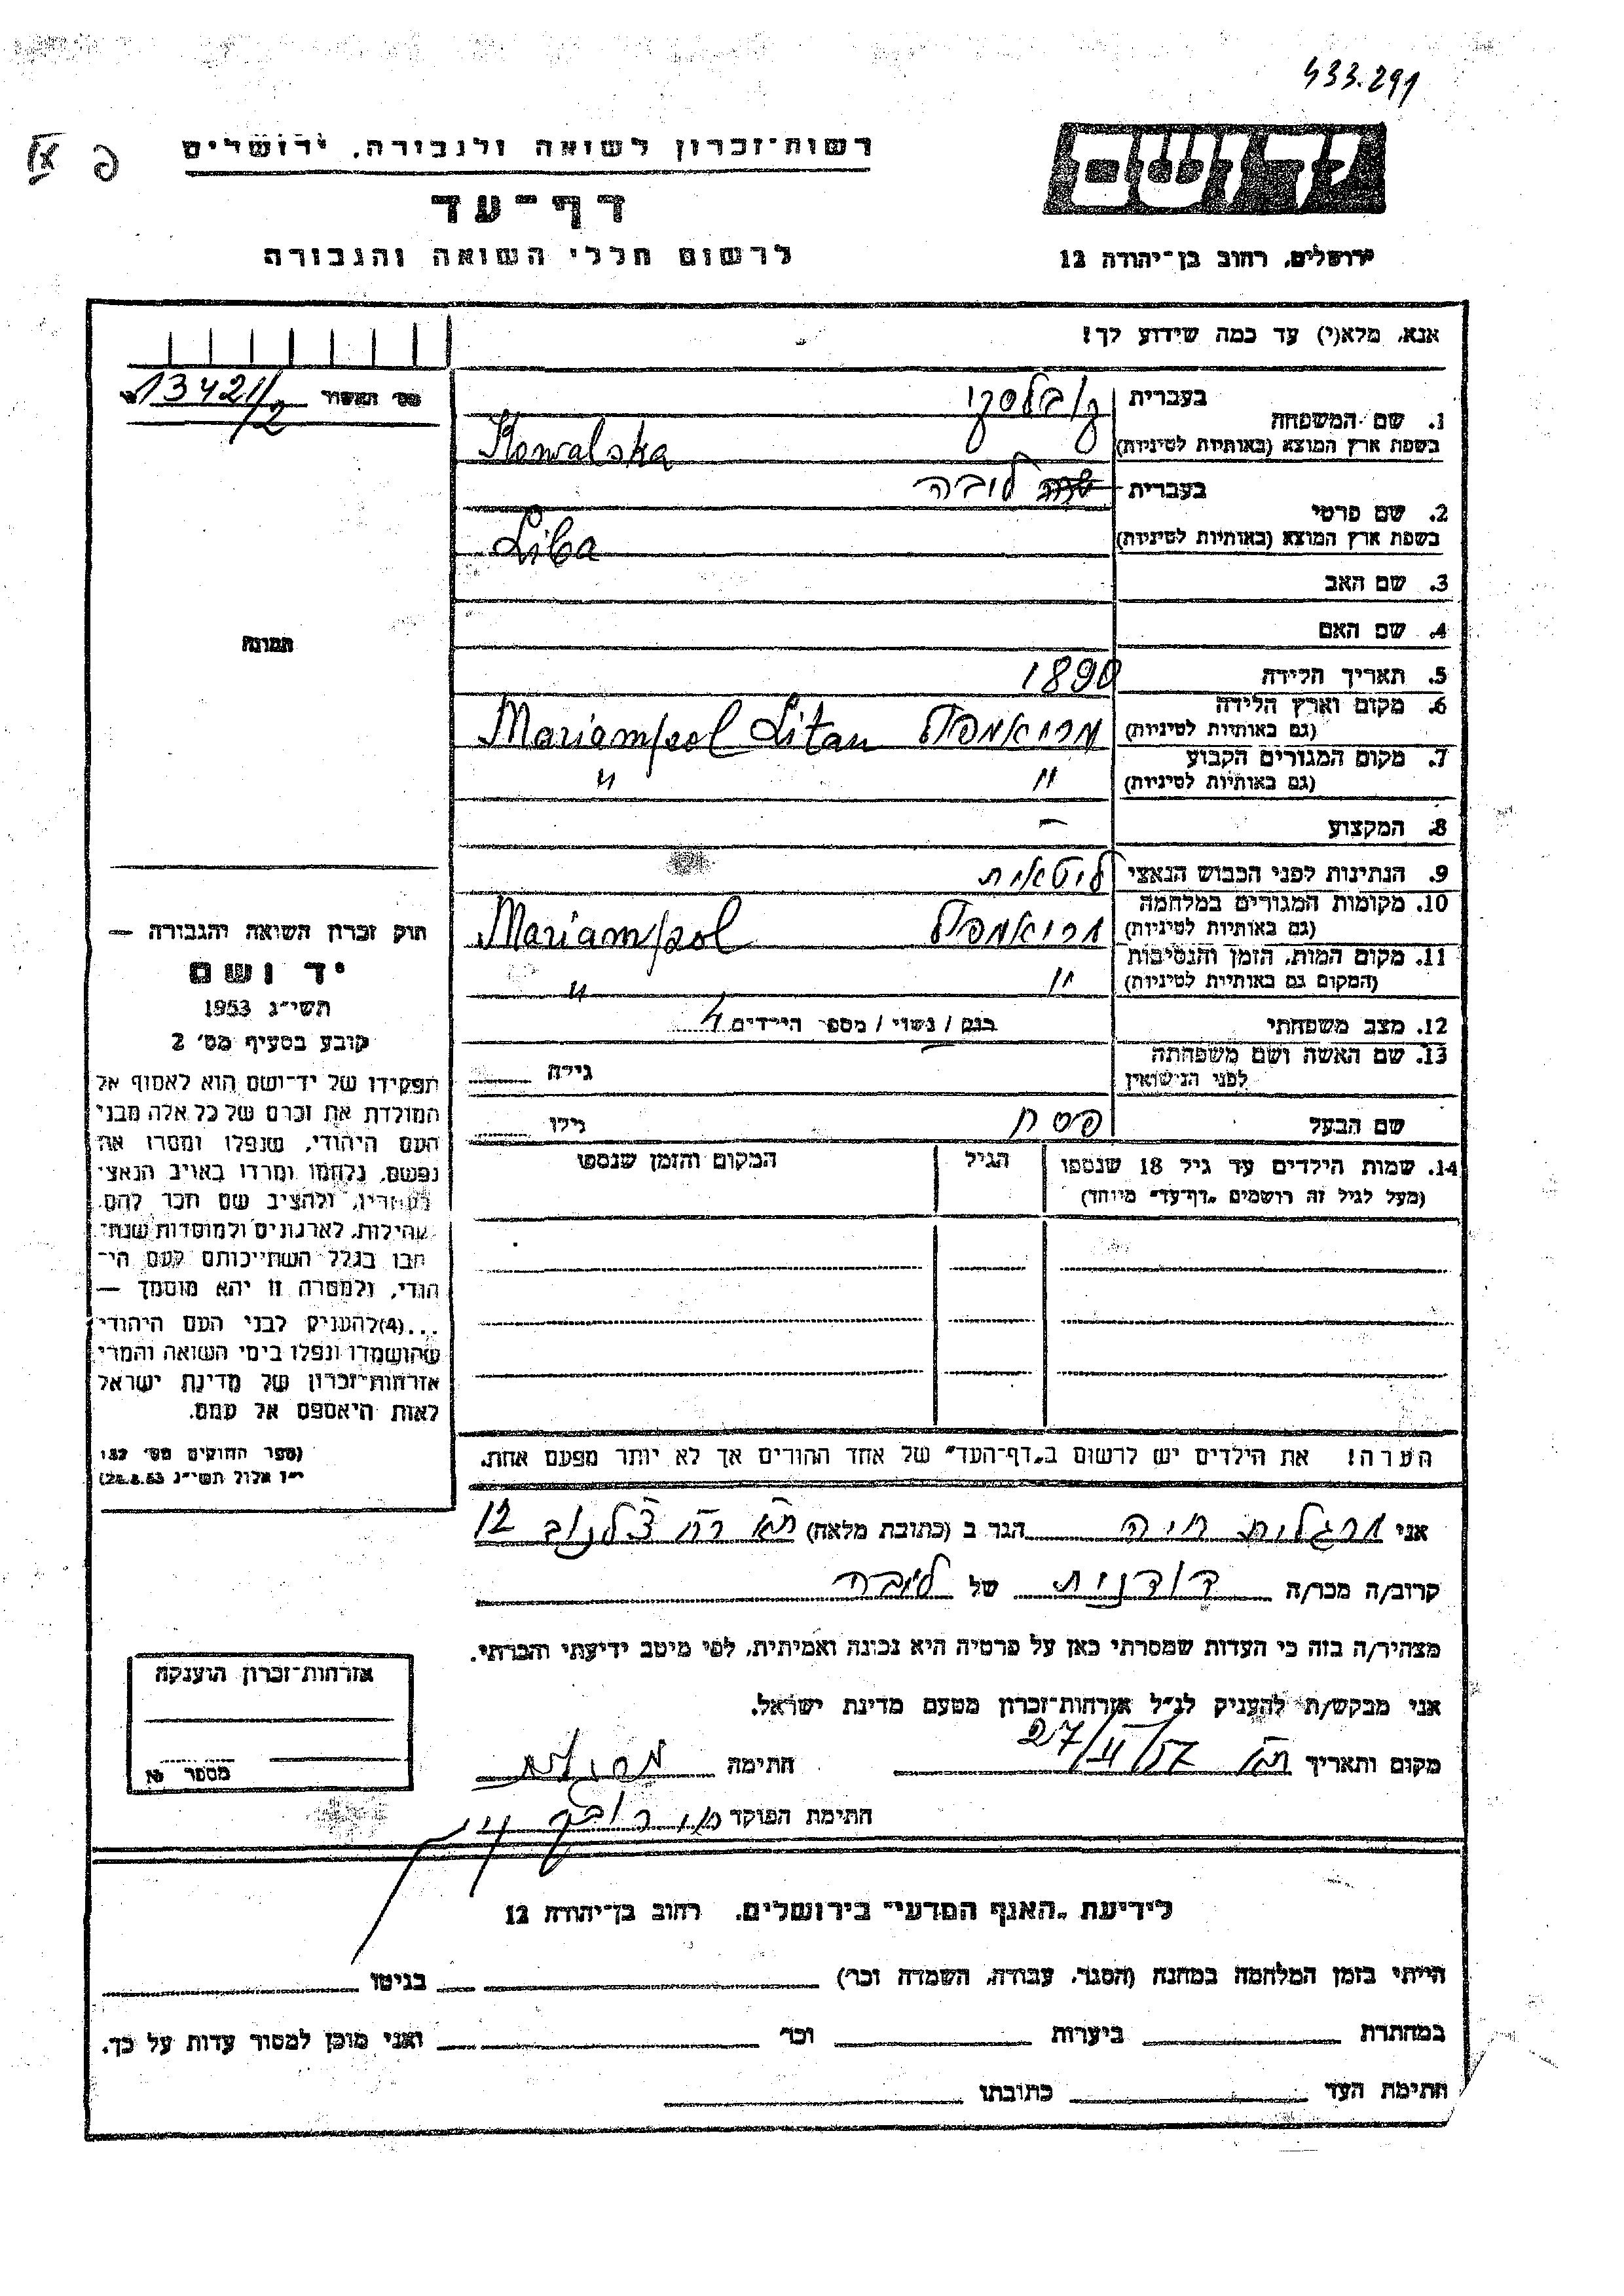 433.291
רשות־זכרון לשואה ולגבורה, ירושלים
דף־עד
לרשום חללי השואה והגבורה
יד ושם
ירושלים, רחוב בן־יהודה 12
אנא, מלא(י) עד כמה שידוע לך!
מס׳ האשור 13421/2
1. שם המשפחה
בעברית קובלסקי
בשפת ארץ המוצא (באותיות לטיניות) Kowalska
2. שם פרטי
בעברית ליבה
בשפת ארץ המוצא (באותיות לטיניות) Liba
3. שם האב
4. שם האם
תמונה
5. תאריך הלידה 1890
6. מקום וארץ הלידה
(גם באותיות לטיניות) מריאמפול Mariampol Litau
7. מקום המגורים הקבוע
(גם באותיות לטיניות) " "
8. המקצוע —
9. הנתינות לפני הכבוש הנאצי ליטאית
10. מקומות המגורים במלחמה
(גם באותיות לטיניות) מריאמפול Mariampol
11. מקום המות, הזמן והנסיבות
(המקום גם באותיות לטיניות) " "
12. מצב משפחתי רווק / נשוי / מספר הילדים 4
13. שם האשה ושם משפחתה
לפני הנישואין גילה
שם הבעל פסח גילו
14. שמות הילדים עד גיל 18 שנספו
(מעל לגיל זה רושמים „דף־עד” מיוחד)
הגיל
המקום והזמן שנספו
חוק זכרון השואה והגבורה —
יד ושם
תשי״ג 1953
קובע בסעיף מס׳ 2
תפקידו של יד־ושם הוא לאסוף אל
המולדת את זכרם של כל אלה מבני
העם היהודי, שנפלו ומסרו את
נפשם, נלחמו ומרדו באויב הנאצי
בעוזריו, ולהציב שם וזכר להם,
לקהילות, לארגונים ולמוסדות שנח־
רבו בגלל השתייכותם לעם הי־
הודי, ולמטרה זו יהא מוסמך —
...(4)להעניק לבני העם היהודי
שהושמדו ונפלו בימי השואה והמרי
אזרחות־זכרון של מדינת ישראל
לאות היאספם אל עמם.
(ספר החוקים מס׳ 132
י״ז אלול תשי״ג 28.8.53)
הערה! את הילדים יש לרשום ב„דף־העד” של אחד ההורים אך לא יותר מפעם אחת.
אני מרגלית חיה הגר ב (כתובת מלאה) ת״א רח׳ צ׳לנוב 12
קרוב/ה מכר/ה דודנית של ליבה
מצהיר/ה בזה כי העדות שמסרתי כאן על פרטיה היא נכונה ואמיתית, לפי מיטב ידיעתי והכרתי.
אני מבקש/ת להעניק לנ״ל אזרחות־זכרון מטעם מדינת ישראל.
מקום ותאריך ת״א 27/II/57 חתימה
חתימת הפוקד
אזרחות־זכרון הוענקה
מספר №
לידיעת „האגף המדעי” בירושלים, רחוב בן־יהודה 12
הייתי בזמן המלחמה במחנה (הסגר, עבודה, השמדה וכו׳) בגיטו
במחתרת ביערות וכו׳ ואני מוכן למסור עדות על כך.
חתימת העד כתובתו